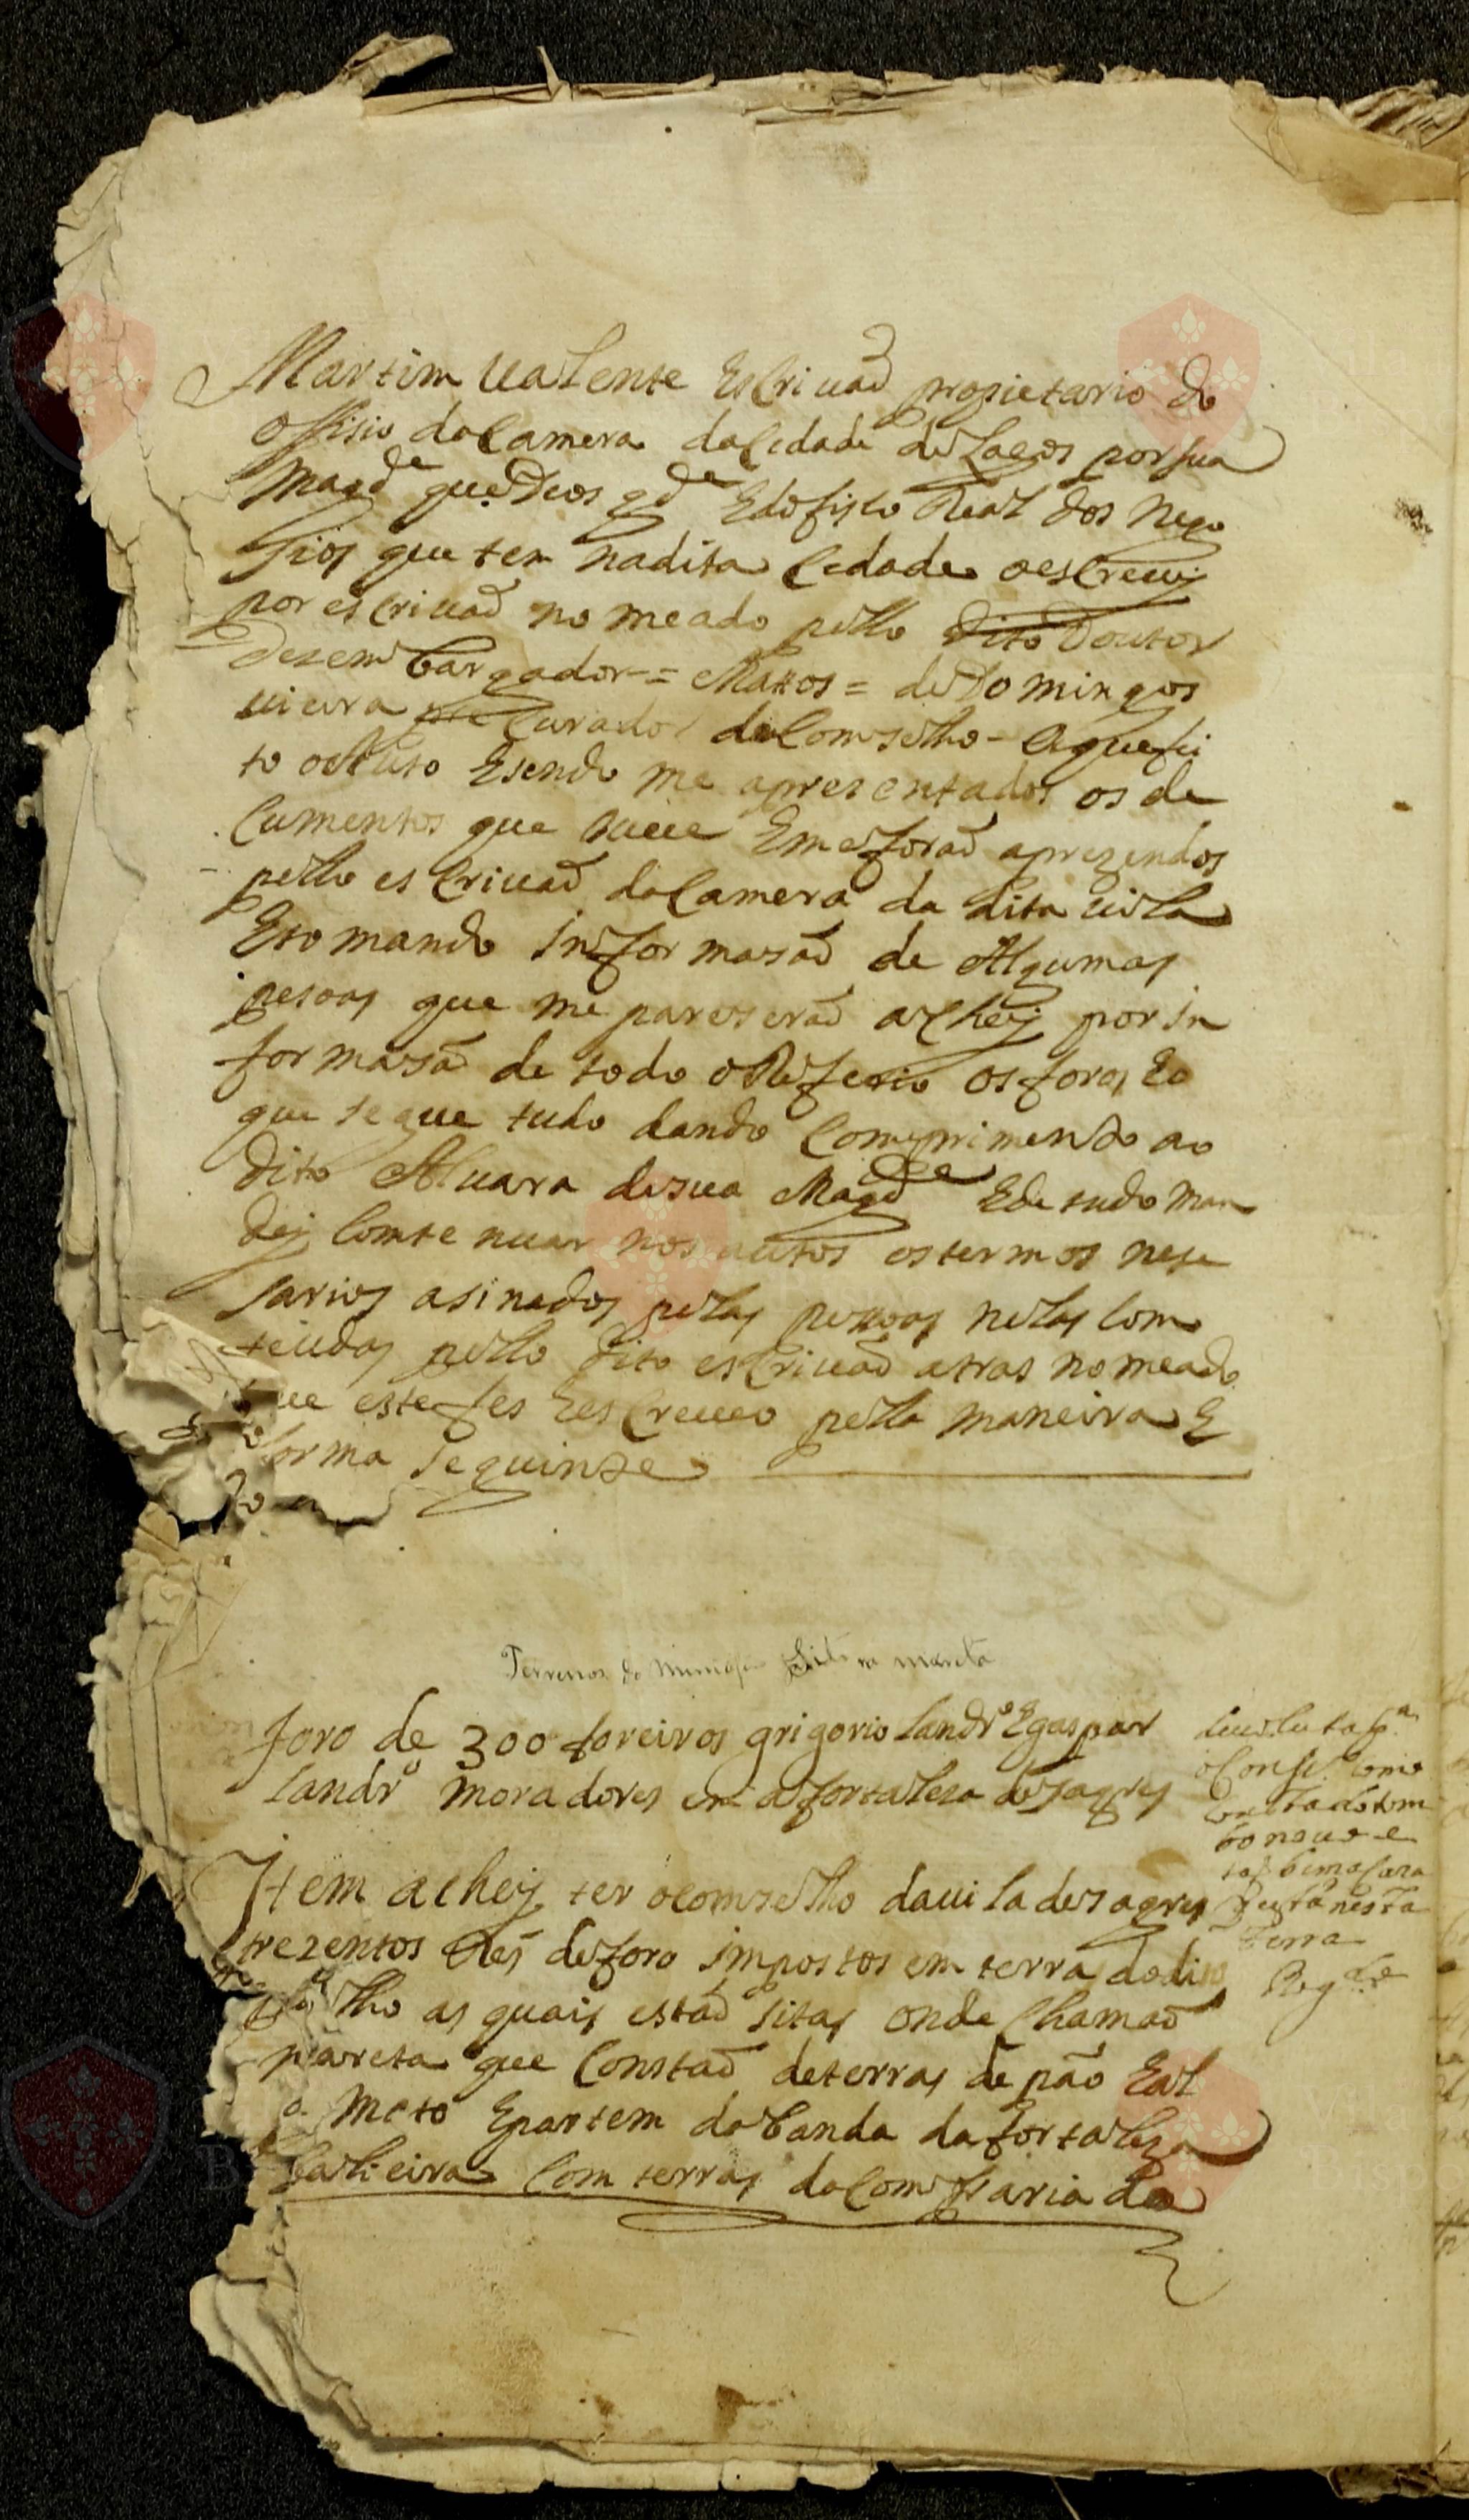 Martim Ualente Escriuaõ propietario do
Offisio da Camera da Cidade de Lagos por sua
Magd.e que Deos gd.e E do fisco Real dos nego
sios que tem na dita Cidade o escreuij
por escriuaõ nomeado pello dito Doutor
dezembargador = Mattos = de Domingos
uieira procurador do Comselho - a que fei
to o auto E sendo me aprezentados os do
cumentos que ouue E me foraõ aprezendos
pello escriuaõ da Camera da dita uila
E tomando imformasaõ de Algumas
pesoas que me pareseraõ achej por in
formasaõ de todo o Referio os foros E o
que se que tudo dando Comprimento ao
dito Aluara de sua Magd.e E de tudo man
dej Comtenuar nos autos os termos nese
sarios asinados pelas pessoas nelas Com
teudas pello dito escriuaõ atras nomeado
que este fes E escreueo pella maneira E
forma seguinte
Terrenos do
foro de 300 foreiros grigorio Landr.o E gaspar
Landr.o moradores em a fortaleza de sagres
Item achej ter o comselho da uila de sagres
trezentos Reis de foro impostos em terras do dito
selho as quais estaõ sitas onde Chamaõ
mareta que Constaõ de terras de paõ E al
o mato E partem da banda da fortaleza
baleieira Com terras da Comfraria da
nesta
terra